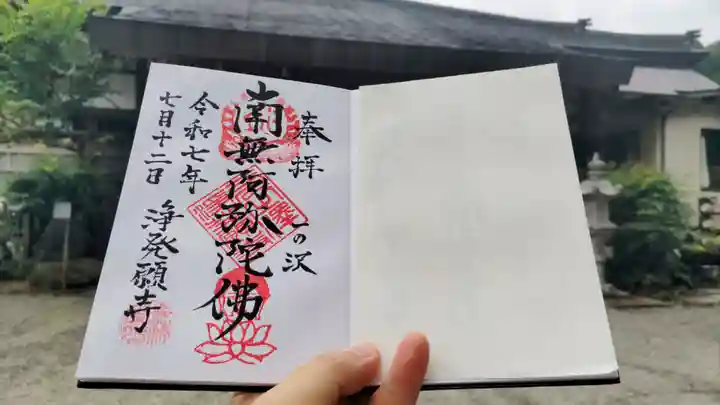 奉拝
一の沢
南無阿弥陀佛
令和七年
七月十二日
浄発願寺